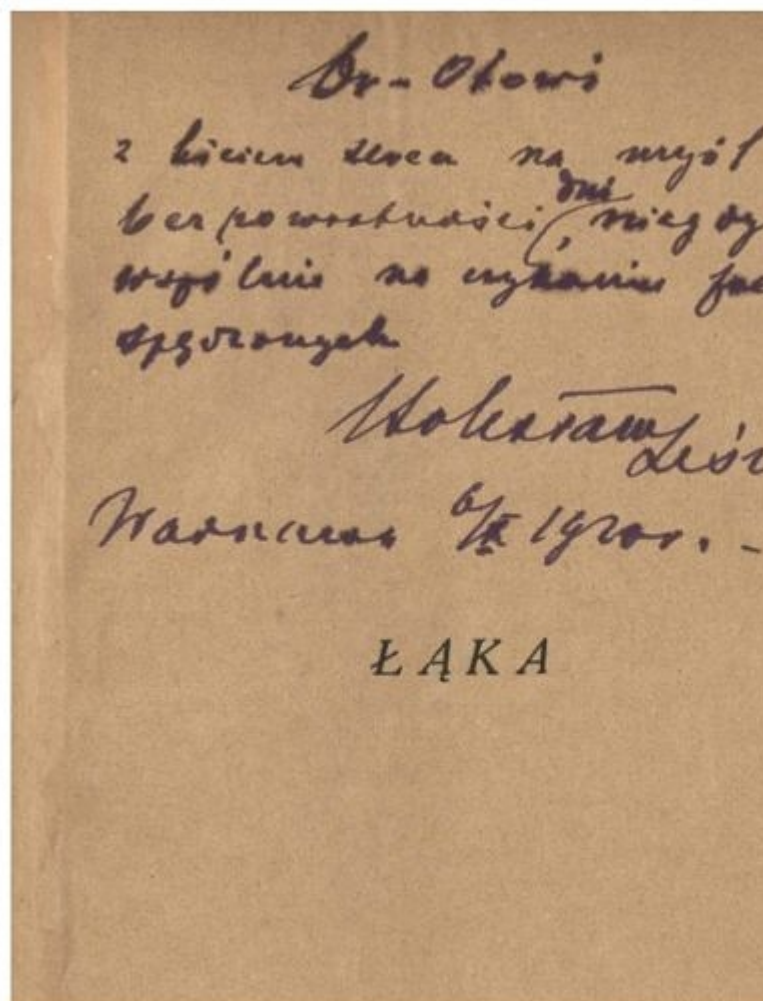 Otowi
z biciem serca na myśl
bezpowrotności dni niegdy
wspólnie na
spędzonych
Bolesław Leśm
Warszawa 1920 r. -
ŁĄKA